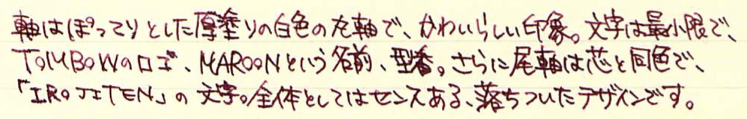 軸はぽってりとした厚塗りの白色の丸軸で、かわいらしい印象。文字は最小限で、
TOMBOWのロゴ、MAROONという名前、型番。さらに尾軸は芯と同色で、
「IROJITEN」の文字。全体としてはセンスある、落ちついたデザインです。